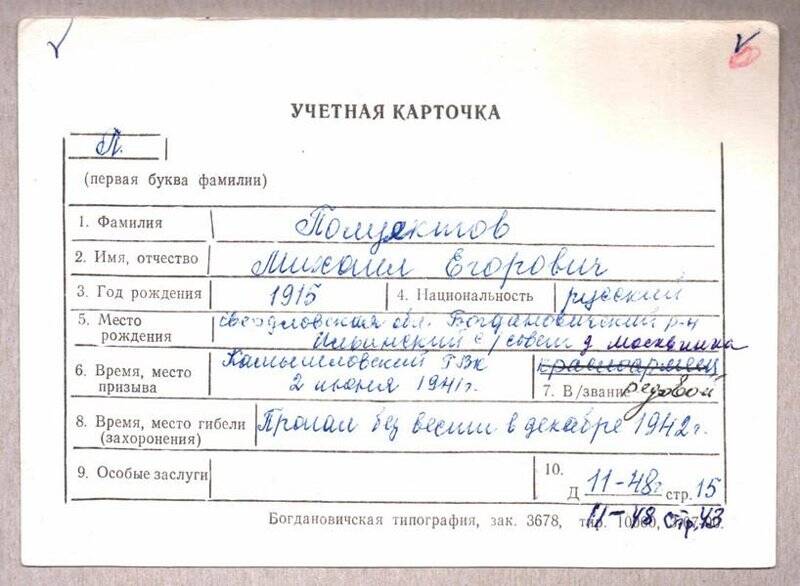 УЧЕТНАЯ КАРТОЧКА
П.
(первая буква фамилии)
1. Фамилия Полуектов
2. Имя, отчество Михаил Егорович
3. Год рождения 1915 4. Национальность русский
5. Место рождения Свердловская обл. Богдановичский р-н
Ильинский с/совет д москвинка
6. Время, место призыва Камышловский РВК
2 июня 1941г.
красноармеец
7. В/звание рядовой
8. Время, место гибели (захоронения) Пропал без вести в декабре 1942 г.
9. Особые заслуги
10.
Д 11-48г стр. 15
Богдановичская типография, зак. 3678, тир. 10000,
11-48 стр. 43